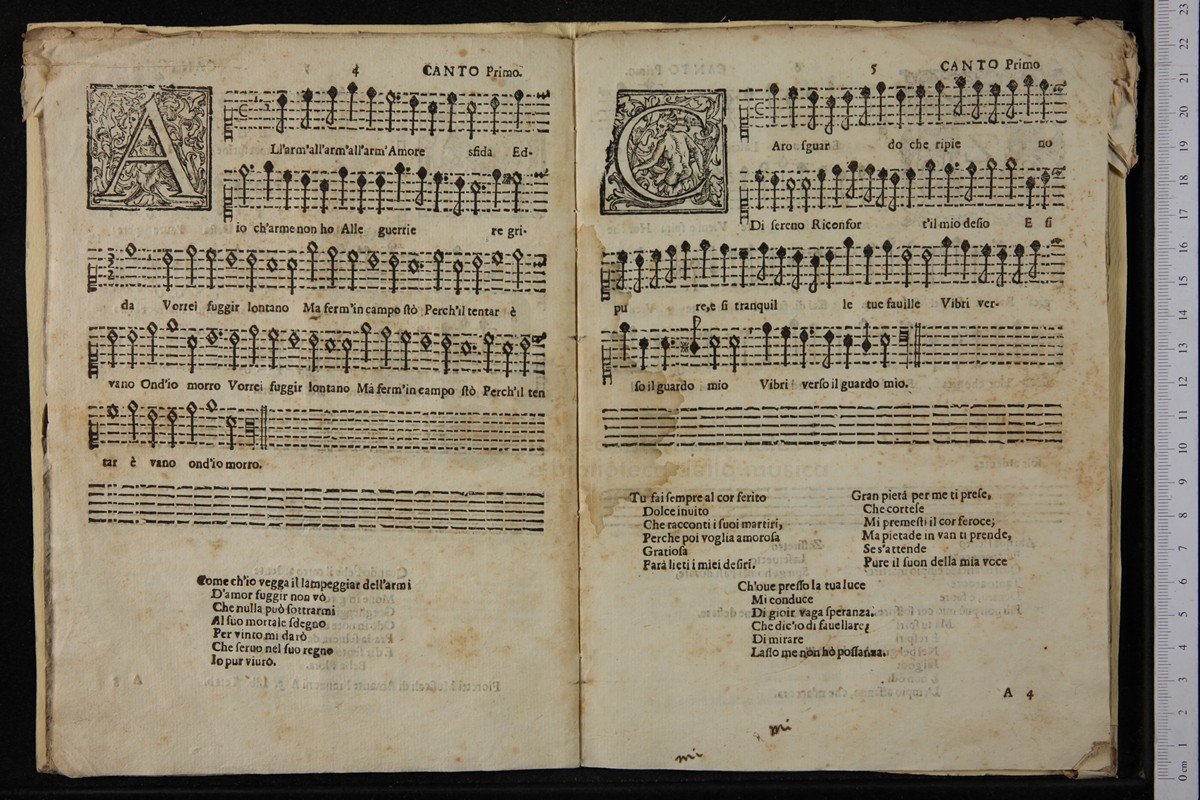 4 CANTO Primo.
ALl'arm'all'arm'all'arm'Amore sfida Ed-
io ch'arme non ho Alle guerrie re gri-
da Vorrei fuggir lontano Ma ferm'in campo stò Perch'il tentar è
vano Ond'io morro Vorrei fuggir lontano Ma ferm'in campo stò Perch'il ten
tar è vano ond'io morro.
Come ch'io vegga il lampeggiar dell'armi
D'amor fuggir non vò
Che nulla può sottrarmi
Al suo mortale sdegno
Per vinto mi darò
Che servo nel suo regno
Io pur viurò.
5 CANTO Primo
CAro sguar do che ripie no
Di sereno Riconfor t'il mio desio E si
pu re,e si tranquil le tue fauille Vibri ver-
so il guardo mio Vibri verso il guardo mio.
Tu fai sempre al cor ferito
Dolce inuito
Che racconti i suoi martiri,
Perche poi voglia amorosa
Gratiosa
Farà lieti i miei desiri.
Gran pietà per me ti prese,
Che cortese
Mi premesti il cor feroce;
Ma pietade in van ti prende,
Se s'attende
Pure il suon della mia voce
Ch'oue presso la tua luce
Mi conduce
Di gioir vaga speranza.
Che dic'io di fauellare?
Di mirare
Lasso me non hò possanza.
A 4
mi
mi
0 cm 1 2 3 4 5 6 7 8 9 10 11 12 13 14 15 16 17 18 19 20 21 22 23